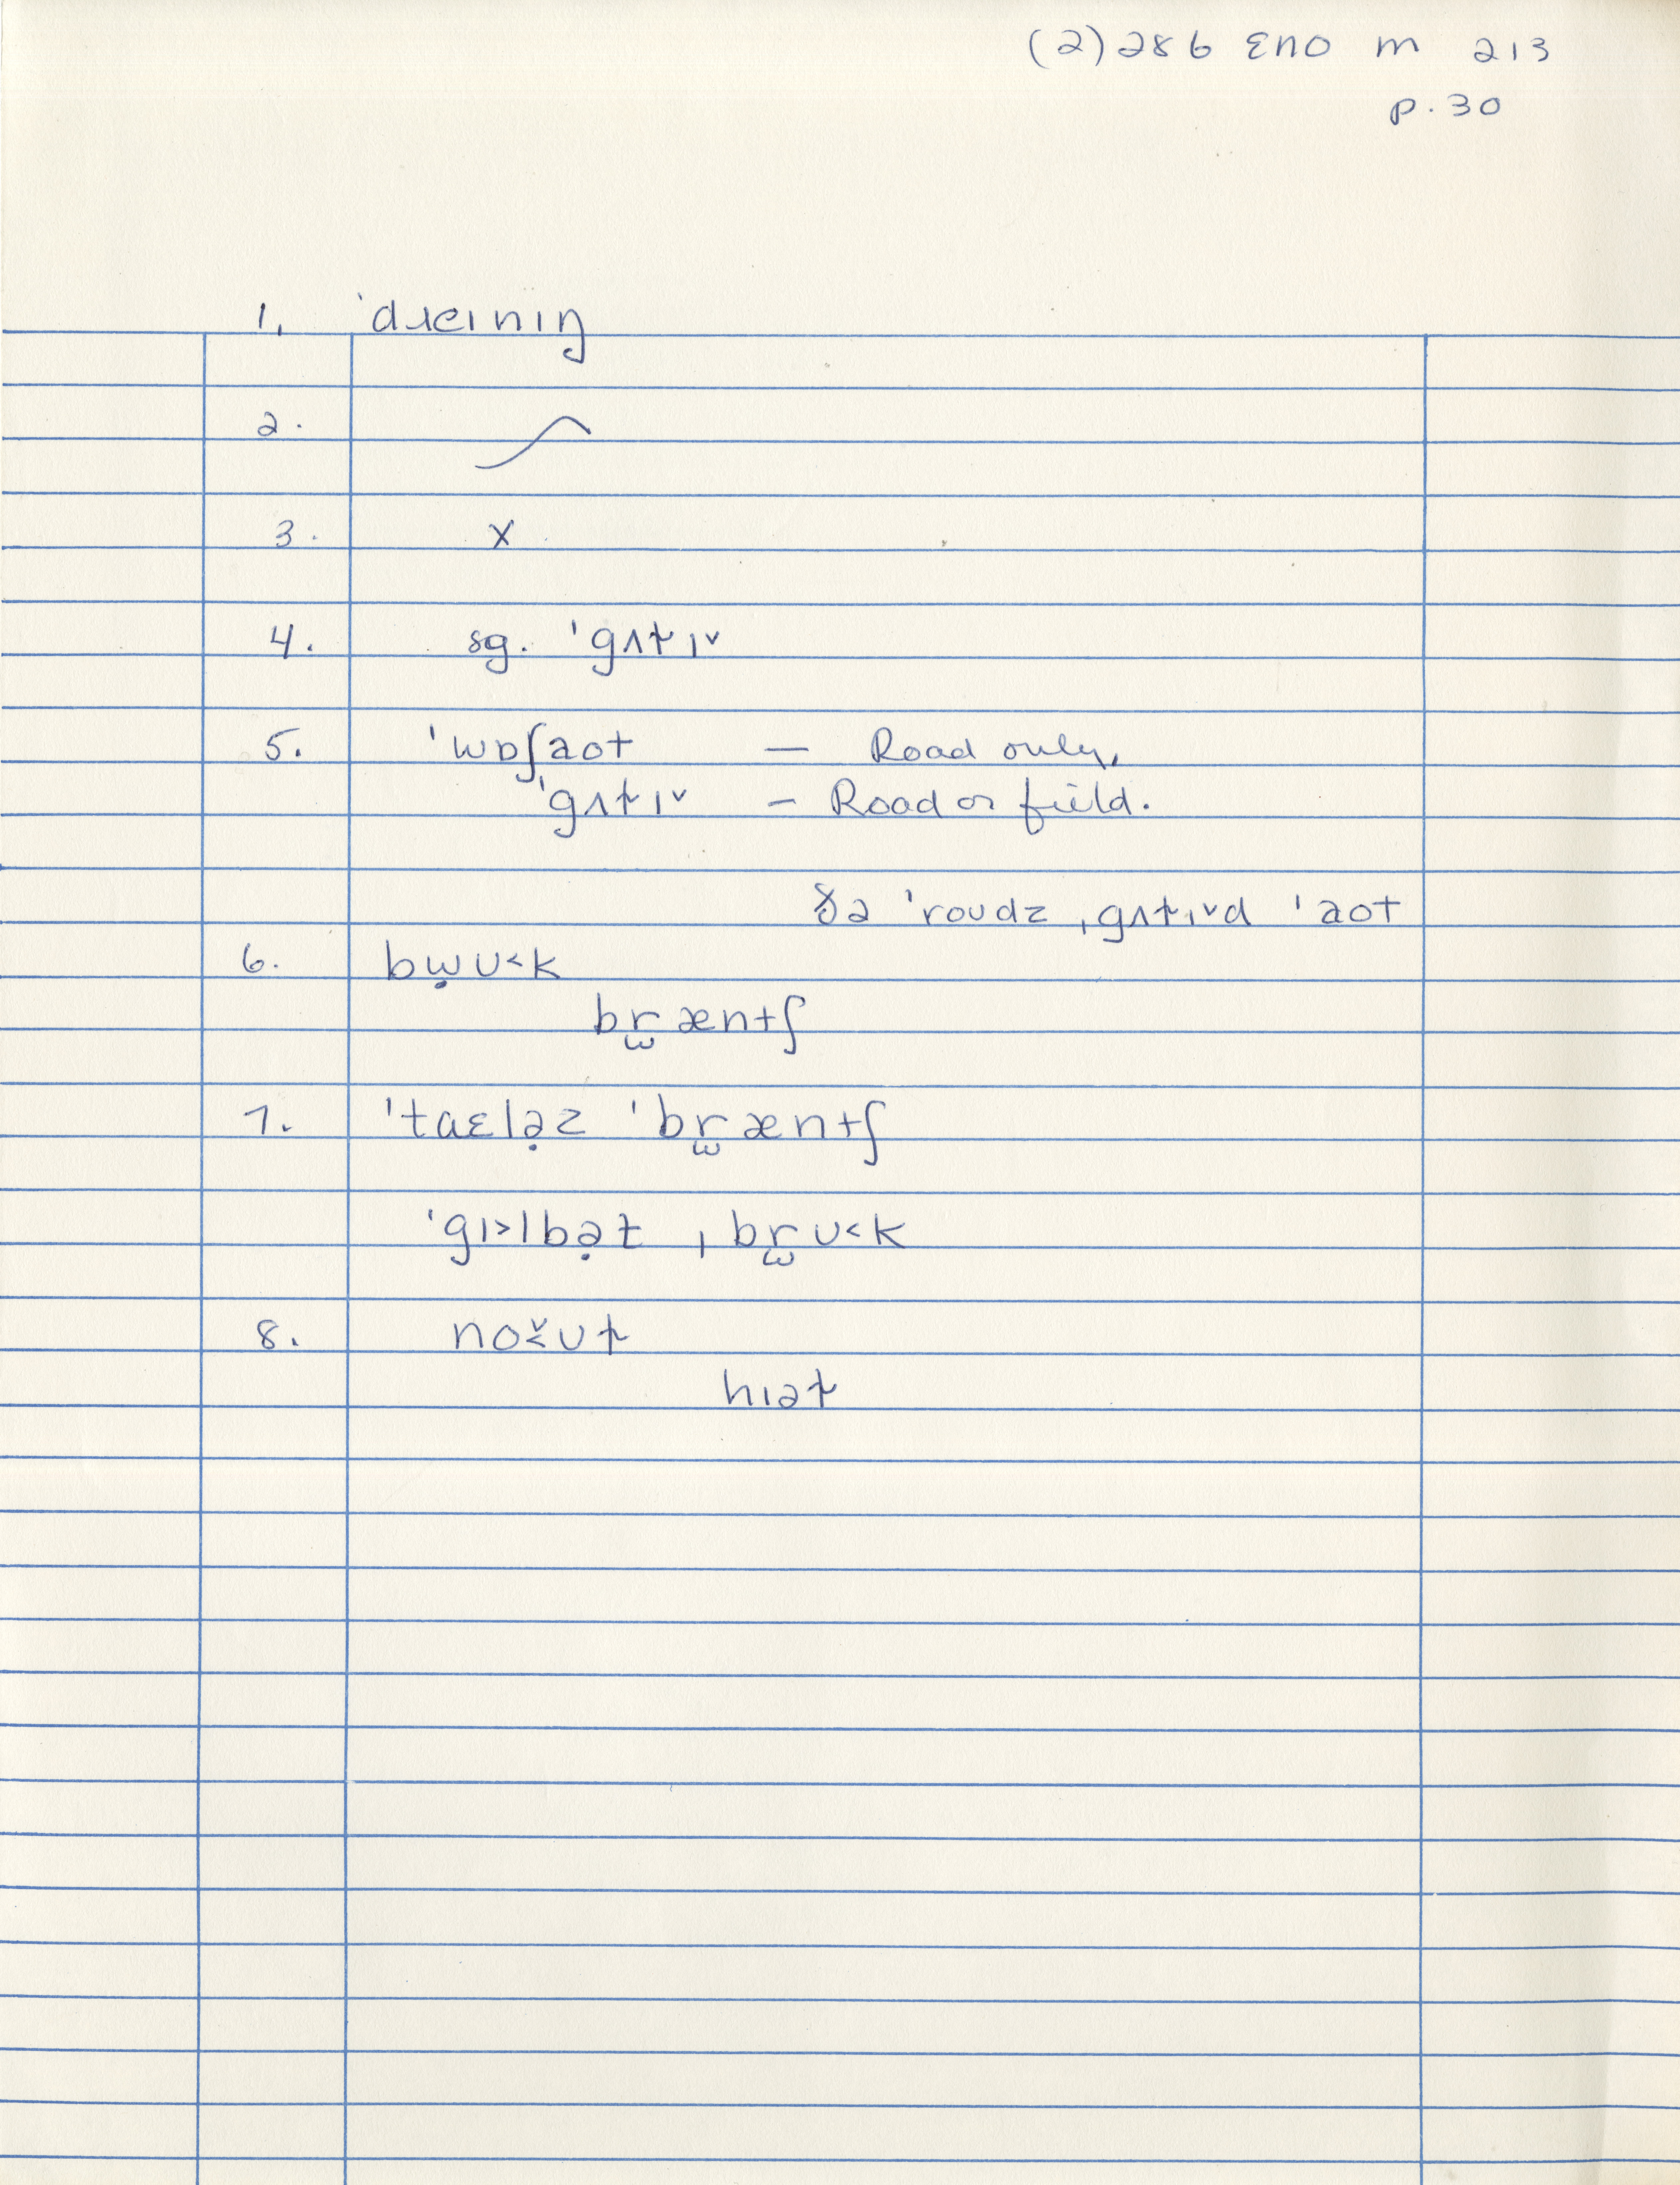 (2) 286 ENO M 213
p. 30
1. ˈdɹeɪnɪŋ
2.
3. X
4. sg. ˈgʌt̬ɪ˅
5. ˈwɒʃaot — Road only,
ˈgʌt̬ɪ˅ — Road or field.
ðə ˈroudz ˌgʌt̬ɪ˅d ˈaot
6. bẉʊ˂k
br̫æntʃ
7. ˈtaɛlə̣z ˈbr̫æntʃ
ˈgɪ˃lbə̣t ˌbr̫ʊ˂k
8. no˂̌ʊt̬
hɪət̬